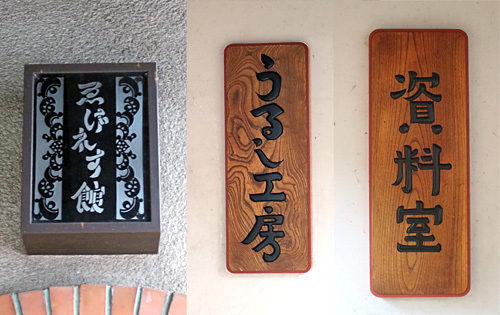 ゑびれす館
うるし工房
資料室